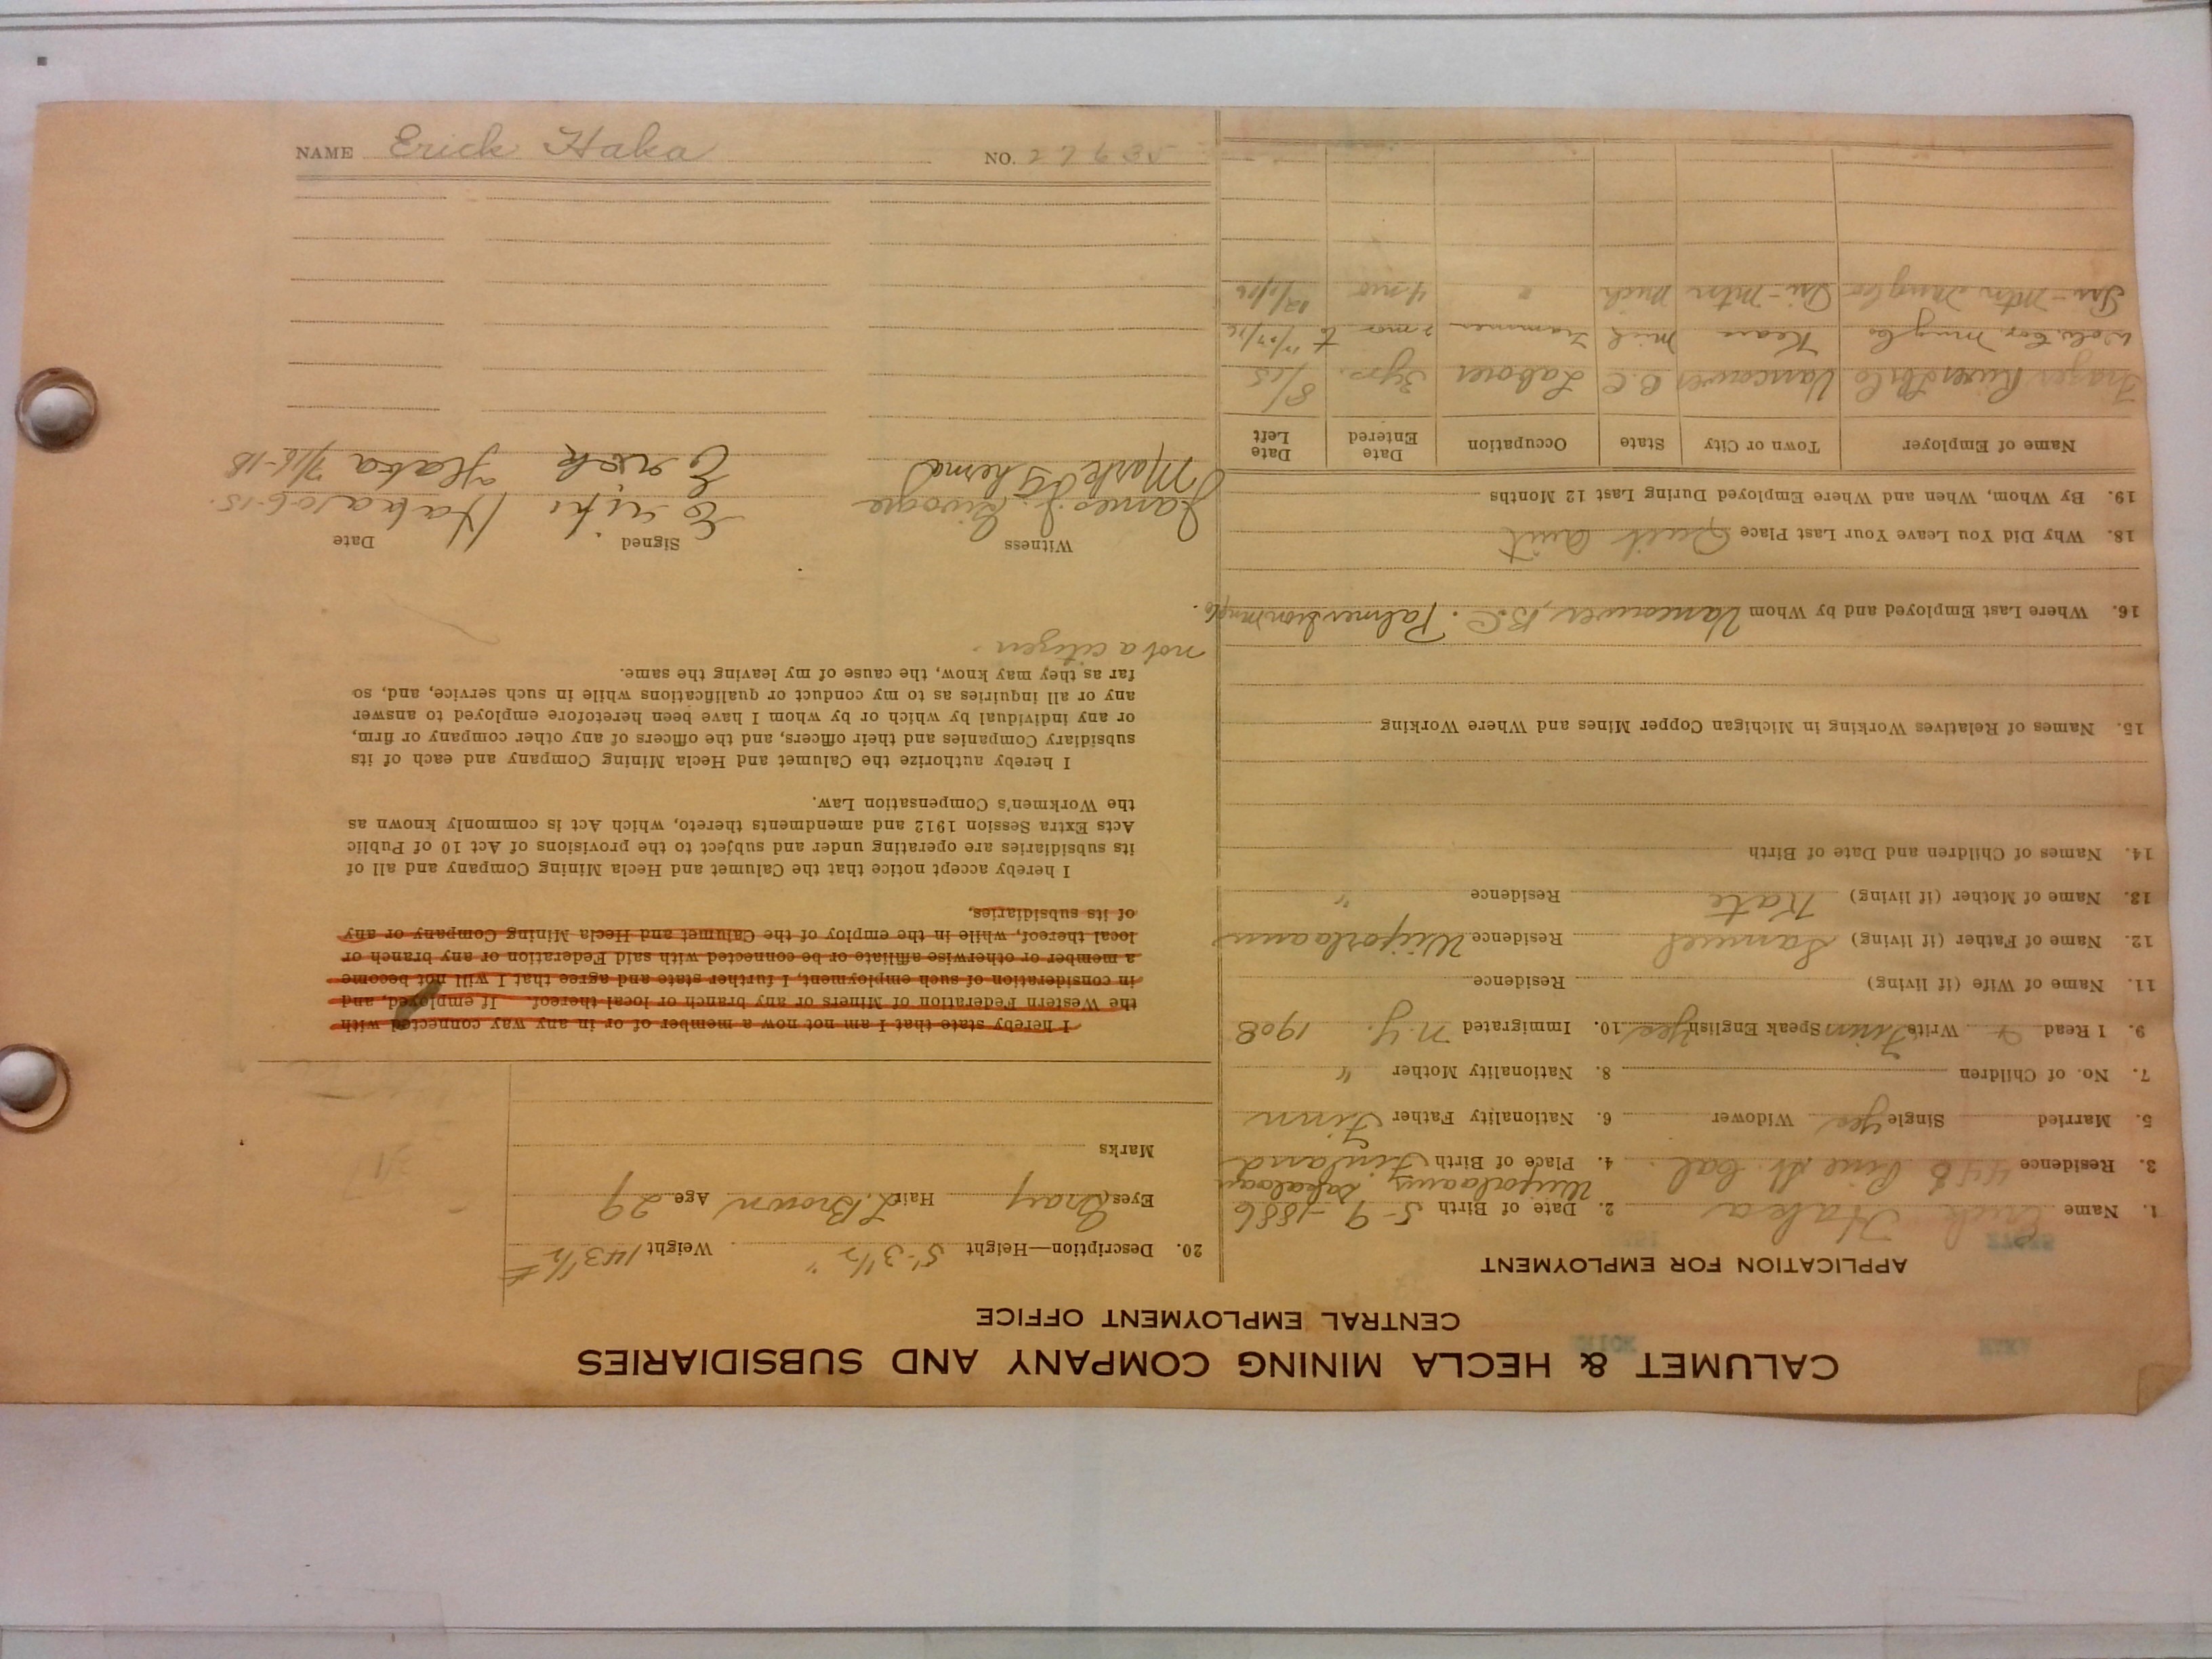 CALUMET & HECLA MINING COMPANY AND SUBSIDIARIES
CENTRAL EMPLOYMENT OFFICE
APPLICATION FOR EMPLOYMENT
1. Name Erick Haka 2. Date of Birth 5-9-1886
3. Residence 446 Pine St. Cal. 4. Place of Birth Finland
5. Married Single Yes Widower 6. Nationality Father Finn
7. No. of Children 8. Nationality Mother "
9. I Read Write Finn Speak English Yes 10. Immigrated N.Y. 1908
11. Name of Wife (if living) Residence
12. Name of Father (if living) Samuel Residence
13. Name of Mother (if living) Kate Residence "
14. Names of Children and Date of Birth
15. Names of Relatives Working in Michigan Copper Mines and Where Working
16. Where Last Employed and by Whom Vancouver, B.C.
18. Why Did You Leave Your Last Place Quit
19. By Whom, When and Where Employed During Last 12 Months
Name of Employer Town or City State Occupation Date Entered Date Left
River Vancouver B.C. Laborer 3 yrs. 8/15
Mich Trammer
Tri-Mtn Tri-Mtn Mich " 4 mo
20. Description—Height 5'-3 1/2" Weight 143 1/2 #
Eyes Gray Hair L. Brown Age 29
Marks
I hereby state that I am not now a member of or in any way connected with
the Western Federation of Miners or any branch or local thereof. If employed, and
in consideration of such employment, I further state and agree that I will not become
a member or otherwise affiliate or be connected with said Federation or any branch or
local thereof, while in the employ of the Calumet and Hecla Mining Company or any
of its subsidiaries.
I hereby accept notice that the Calumet and Hecla Mining Company and all of
its subsidiaries are operating under and subject to the provisions of Act 10 of Public
Acts Extra Session 1912 and amendments thereto, which Act is commonly known as
the Workmen's Compensation Law.
I hereby authorize the Calumet and Hecla Mining Company and each of its
subsidiary Companies and their officers, and the officers of any other company or firm,
or any individual by which or by whom I have been heretofore employed to answer
any or all inquiries as to my conduct or qualifications while in such service, and, so
far as they may know, the cause of my leaving the same.
not a citizen.
Witness Signed Date
James Haka 10-6-15.
Mark Erick Haka
NAME Erick Haka NO. 27635